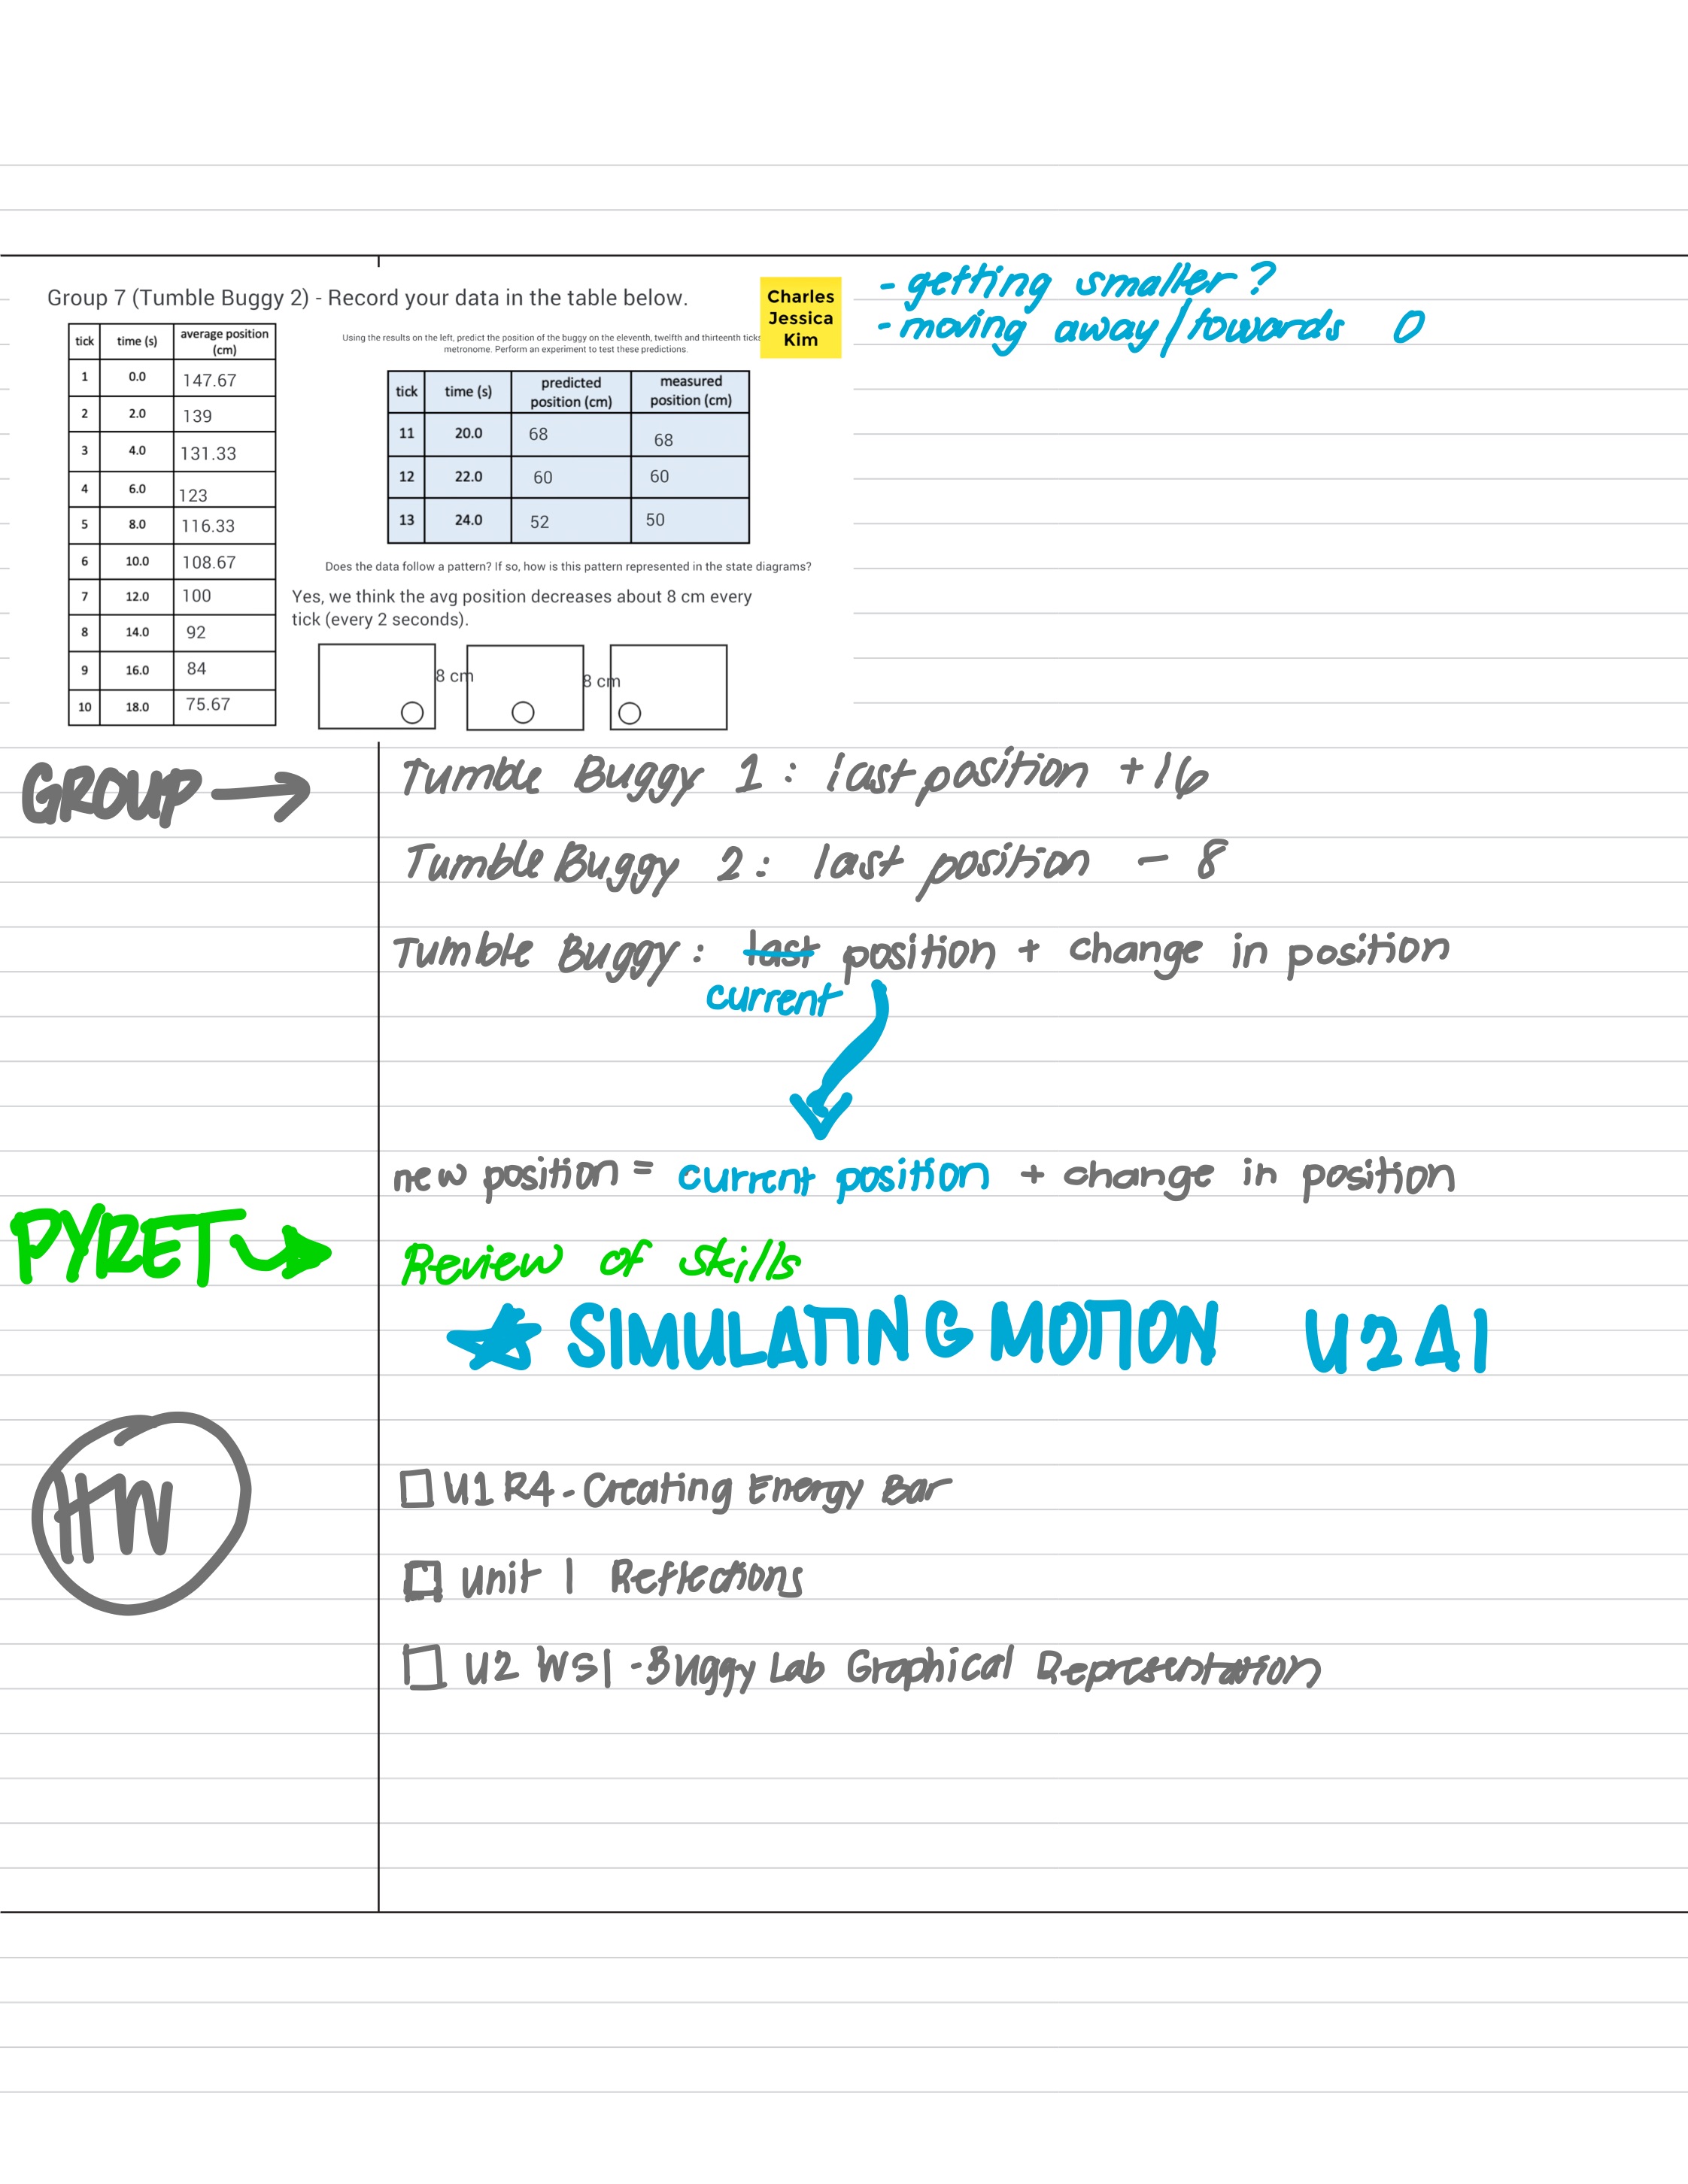 - getting smaller?
- moving away/towards 0
Group 7 (Tumble Buggy 2) - Record your data in the table below.
Charles
Jessica
Kim
tick time (s) average position (cm)
1 0.0 147.67
2 2.0 139
3 4.0 131.33
4 6.0 123
5 8.0 116.33
6 10.0 108.67
7 12.0 100
8 14.0 92
9 16.0 84
10 18.0 75.67
Using the results on the left, predict the position of the buggy on the eleventh, twelfth and thirteenth ticks
metronome. Perform an experiment to test these predictions.
tick time (s) predicted position (cm) measured position (cm)
11 20.0 68 68
12 22.0 60 60
13 24.0 52 50
Does the data follow a pattern? If so, how is this pattern represented in the state diagrams?
Yes, we think the avg position decreases about 8 cm every
tick (every 2 seconds).
8 cm 8 cm
GROUP → Tumble Buggy 1: last position + 16
Tumble Buggy 2: last position - 8
Tumble Buggy: last position + change in position
current
new position = current position + change in position
PYRET → Review of skills
★ SIMULATING MOTION U2A1
HW
U1 R4 - Creating Energy Bar
Unit 1 Reflections
U2 WS1 - Buggy Lab Graphical Representation